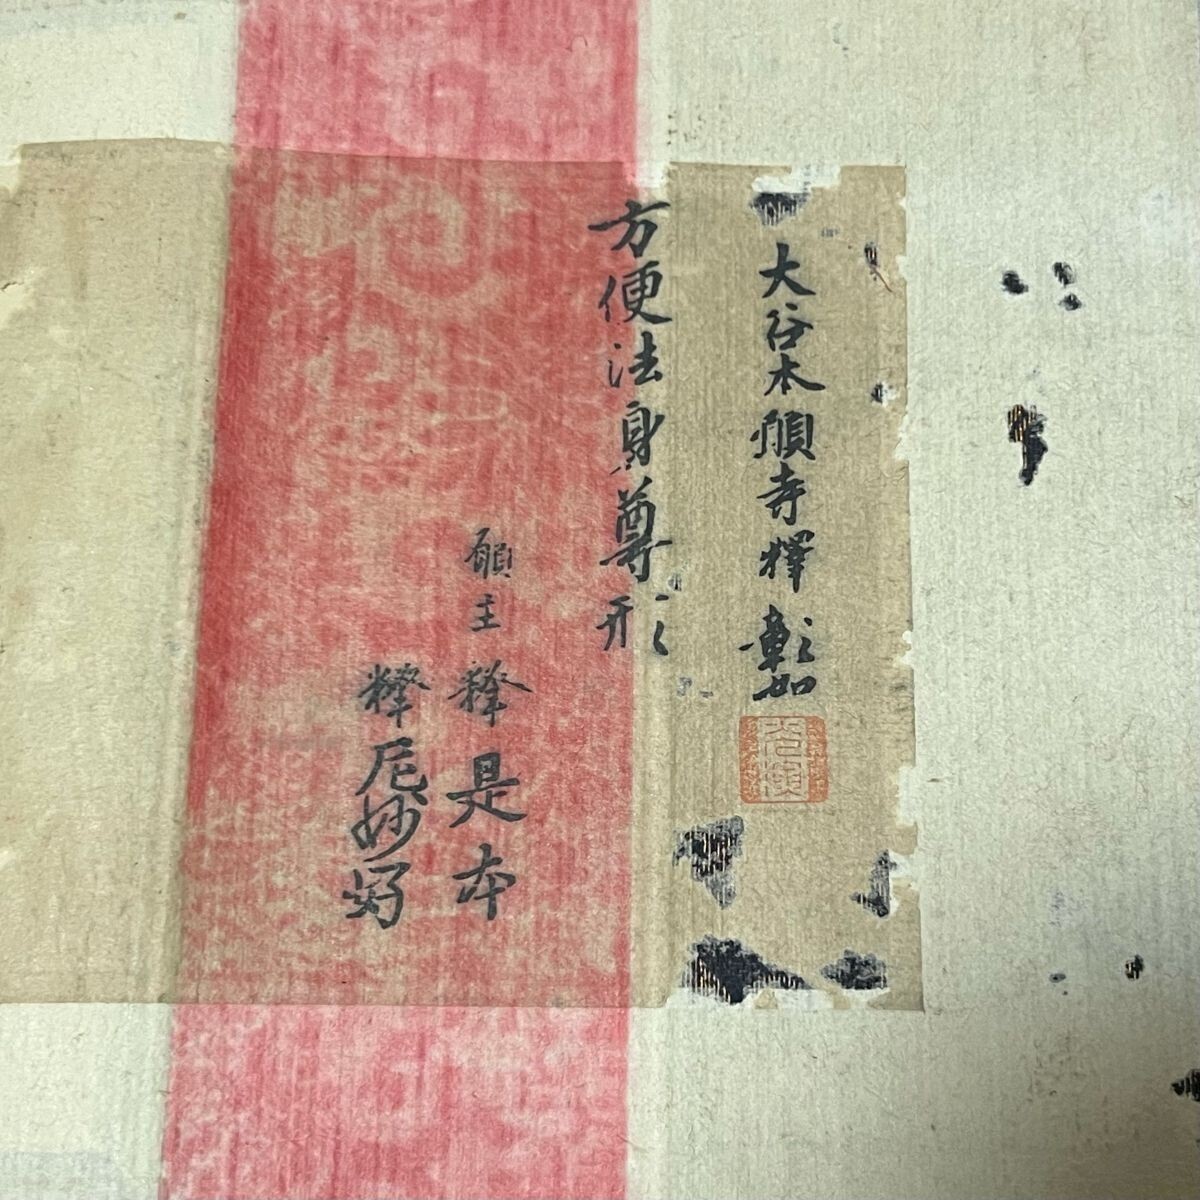 大谷本願寺釋彰如
方便法身尊形
願主
釋是本
釋尼妙好